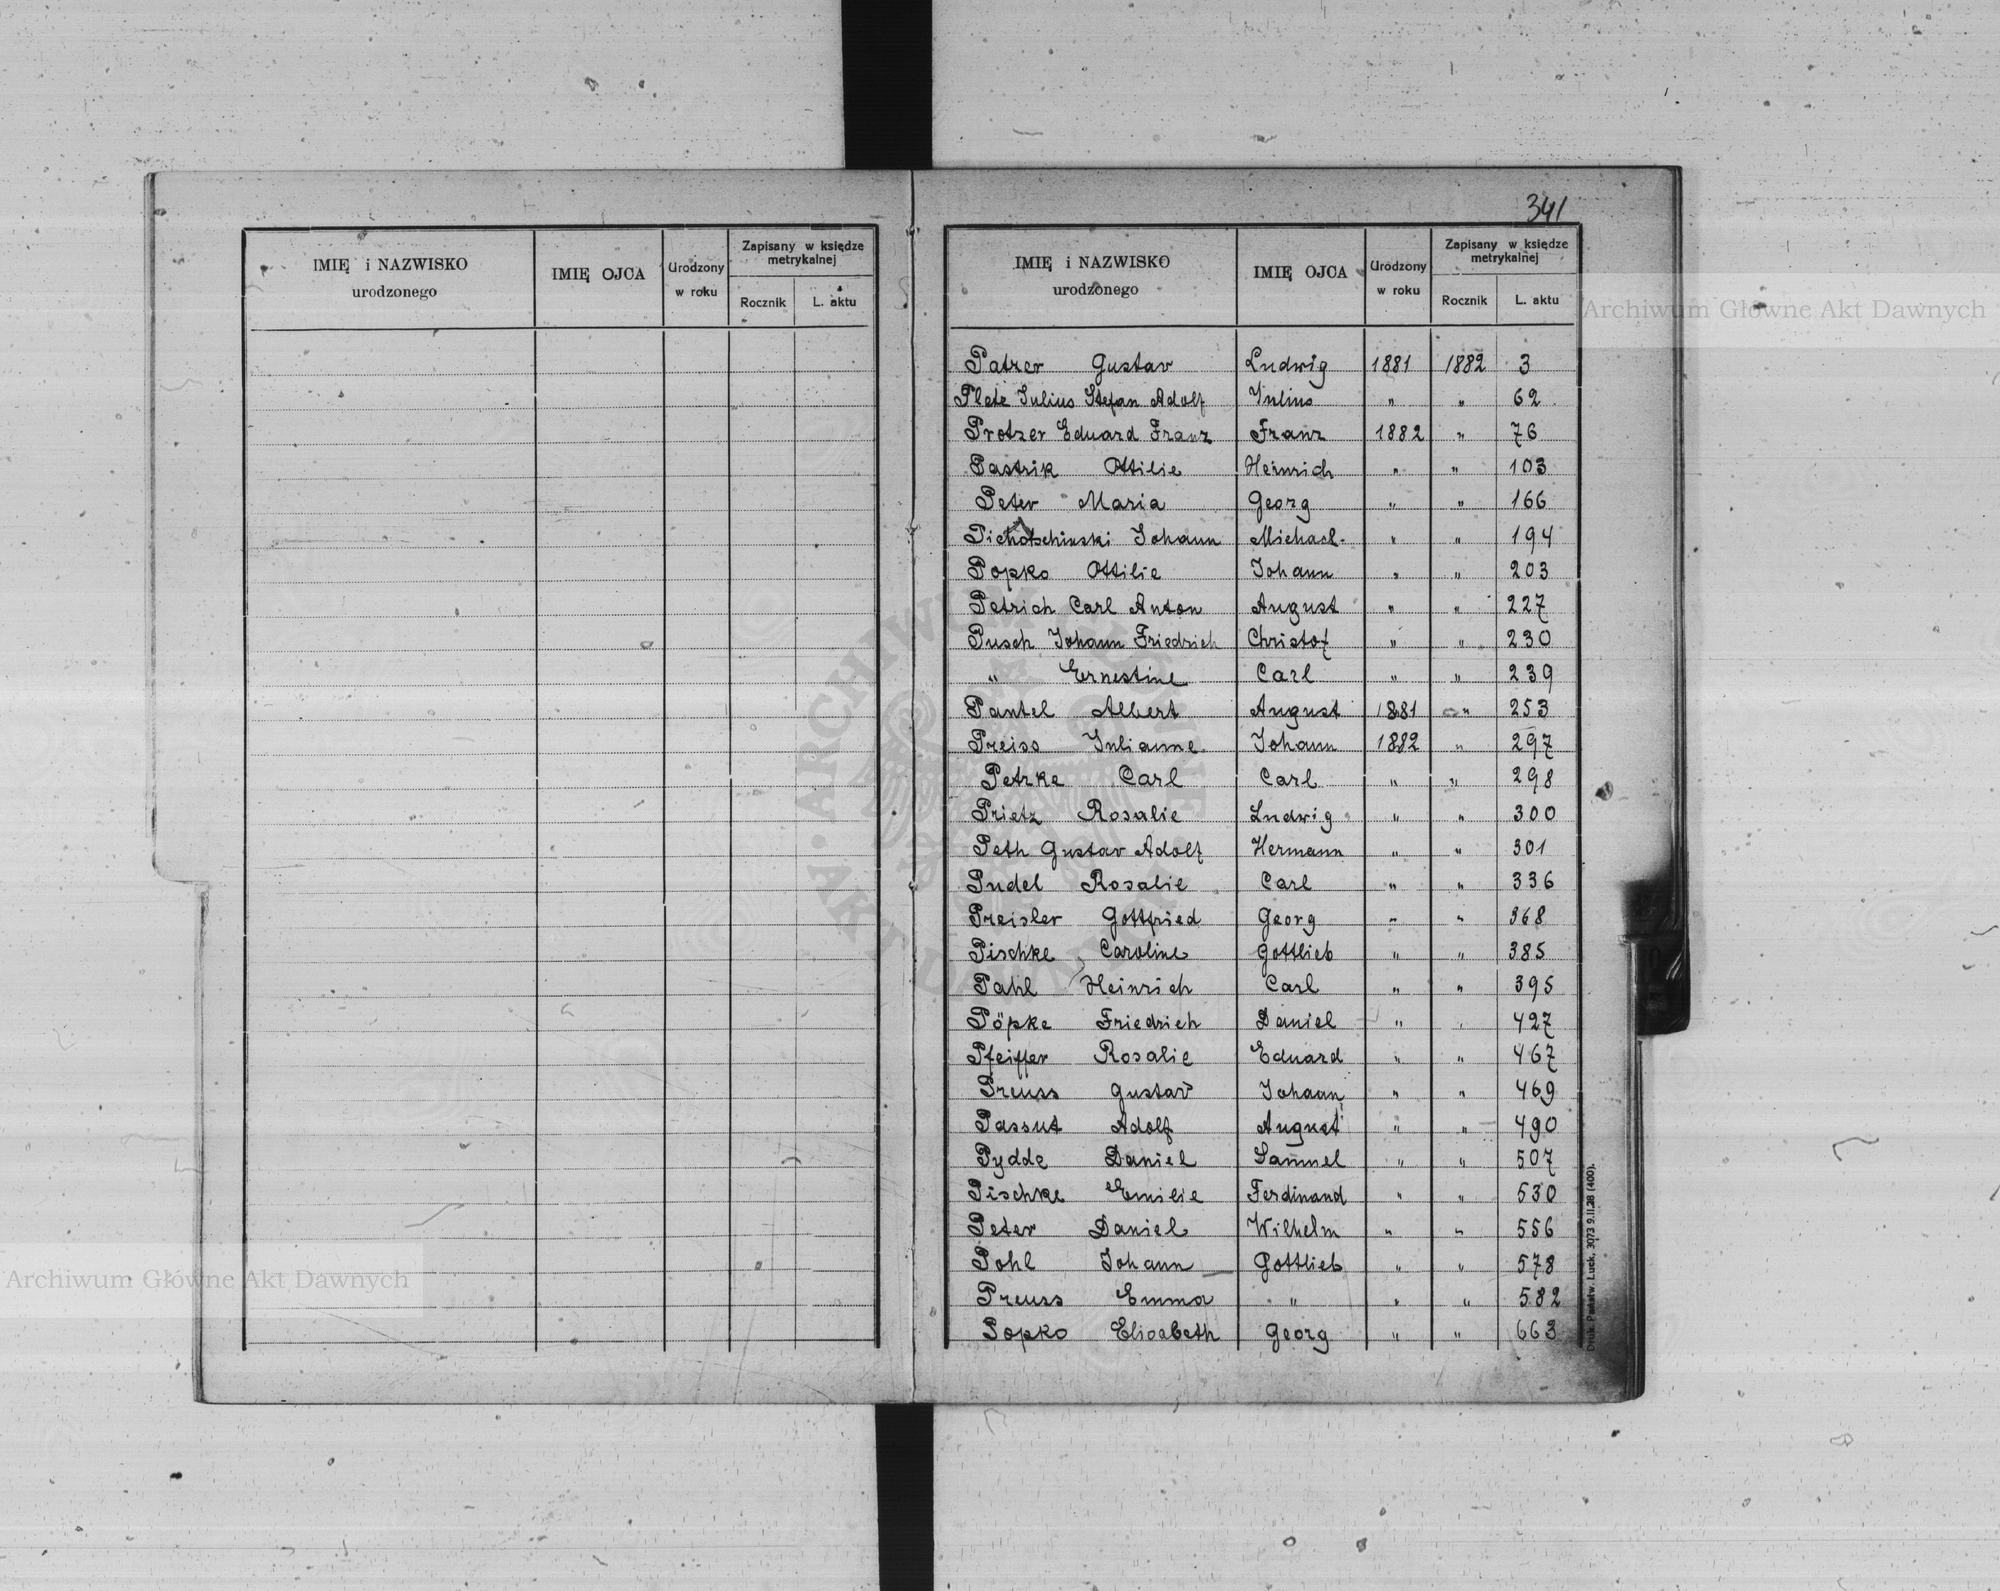 341
IMIĘ i NAZWISKO urodzonego IMIĘ OJCA Urodzony w roku Zapisany w księdze metrykalnej Rocznik L. aktu
IMIĘ i NAZWISKO urodzonego IMIĘ OJCA Urodzony w roku Zapisany w księdze metrykalnej Rocznik L. aktu
Patzer Gustav Ludwig 1881 1882 3
Pletz Julius Stefan Adolf Julius " " 62
Protzer Eduard Franz Franz 1882 " 76
Pastrik Ottilie Heinrich " " 103
Peter Maria Georg " " 166
Pichotschinski Johann Michael " " 194
Popko Ottilie Johann " " 203
Petrich Carl Anton August " " 227
Pusch Johann Friedrich Christof " " 230
" Ernestine Carl " " 239
Pantel Albert August 1881 " 253
Preiss Julianne Johann 1882 " 297
Petzke Carl Carl " " 298
Prietz Rosalie Ludwig " " 300
Peth Gustav Adolf Hermann " " 301
Pudel Rosalie Carl " " 336
Preisler Gottfried Georg " " 368
Pischke Caroline Gottlieb " " 385
Pahl Heinrich Carl " " 395
Pöpke Friedrich Daniel " " 427
Pfeiffer Rosalie Eduard " " 467
Preuss Gustav Johann " " 469
Passut Adolf August " " 490
Pydde Daniel Samuel " " 507
Pischke Emilie Ferdinand " " 530
Peter Daniel Wilhelm " " 556
Pohl Johann Gottlieb " " 578
Preuss Emma " " " 582
Popko Elisabeth Georg " " 663
Druk. Państw. Łuck, 3073 9.II.28 (400).
Archiwum Główne Akt Dawnych
Archiwum Główne Akt Dawnych